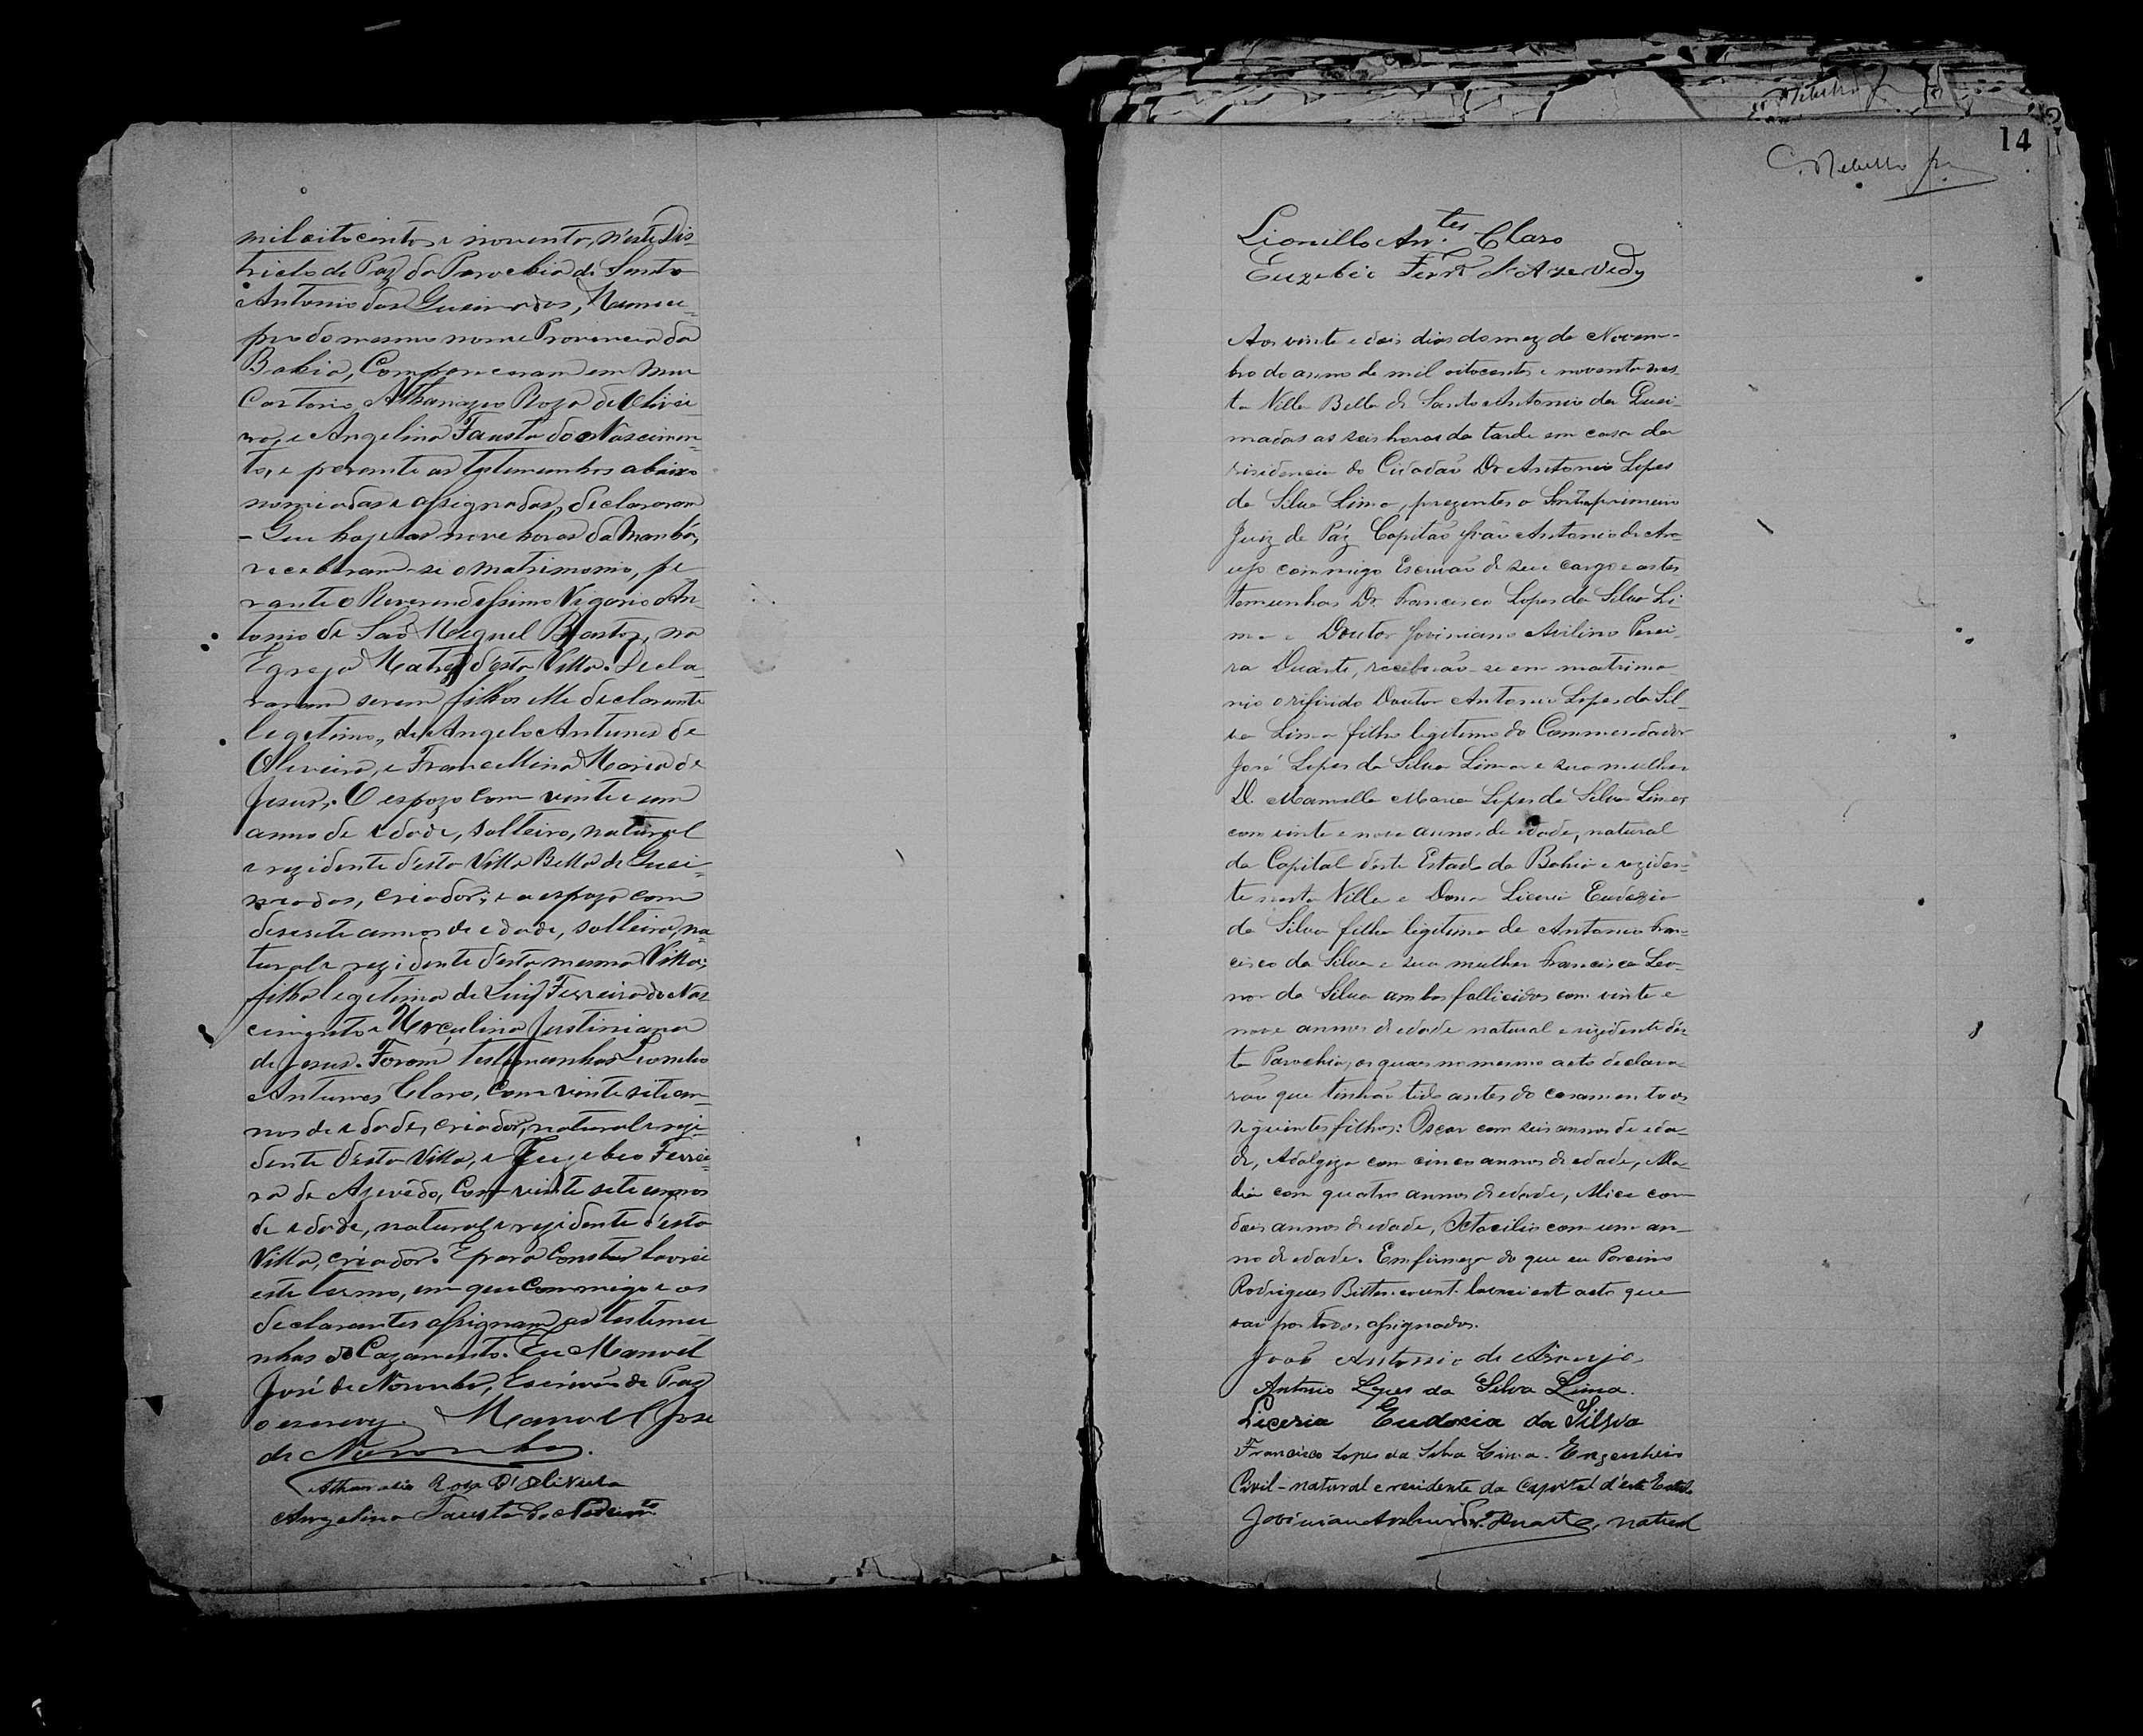 mil oito centos e noventa, n'este Dis-
tricto de Paz da Parochia de Santo
Antonio das Queimadas, Munici-
pio do mesmo nome Provincia da
Bahia, Compareceram em meu
Cartorio Athanazio Roza de Olivei-
ra, e Angelina Fausta do Nascimen-
to, e perante as testemunhas abaixo
nomiadas e assignadas, declararam
- Que hoje as nove horas da manhã,
receberam-se o matrimonio, pe
rante o Reverendissimo Vigario An-
tonio de São Miguel Bastos, na
Egreja Matriz d'esta Villa. Decla-
raram serem filhos elle declarante
legitimo, de Angelo Antunes de
Oliveira, e Francellina Maria de
Jesus. O espozo com vinte e um
annos de edade, solteiro, natural
e rezidente d'esta Villa Bella de Quei-
madas, criador; e a espoza com
desesete annos de edade, solteira, na-
tural e rezidente d'esta mesma Villa;
filha legitima de Luiz Ferreira do Nas
cimento e Herculina Justiniana
de Jesus. Foram testemunhas Leonilio
Antunes Claro, com vinte sete an-
nos de edade, criador, natural e rezi-
dente d'esta Villa, e Euzebio Ferrei-
ra de Azevêdo, com vinte sete annos
de edade, natural e rezidente d'esta
Villa, criador. E para constar lavrei
este termo, em que commigo e os
declarantes assignam as testemu-
nhas do Cazamento. Eu Manoel
José de Noronha, Escrivão de Paz
o escrevy. Manoel José
de Noronha.
Athanazio Roza d'Oliveira
Angelina Fausta do Nascimto
14
C. Rebello
Lionillo An.tes Claro
Euzebio Ferra d'Azevedo
Aos vinte e dois dias do mez de Novem-
bro do anno de mil oitocentos e noventa nes-
ta Villa Bella de Santo Antonio das Quei-
madas as seis horas da tarde em casa da
residencia do Cidadão Dr Antonio Lopes
da Silva Lima, prezentes o primeiro
Juiz de Páz Capitão João Antonio de Ara-
ujo commigo Escrivão de seu cargo e as tes-
temunhas Dr. Francisco Lopes da Silva Li-
ma e Doutor Joviniano Avilino Perei-
ra Duarte, receberão-se em matrimo-
nio o referido Doutor Antonio Lopes da Sil-
va Lima filho legitimo do Commendador
José Lopes da Silva Lima e sua mulher
D. Maria Lopes da Silva Lima,
com vinte e nove annos de edade, natural
da Capital deste Estado da Bahia e reziden-
te nesta Villa e Dona Liceria Eudozia
da Silva filha legitima de Antonio Fran-
cisco da Silva e sua mulher Francisca Leo-
nor da Silva ambos fallicidos com vinte e
nove annos de edade natural e rezidente des-
ta Parochia, os quaes no mesmo acto declara-
rão que tinhão tido antes do casamento os
seguintes filhos: Oscar com seis annos de eda-
de, Adalgiza com cinco annos de edade,
com quatro annos de edade, Alice com
dois annos de edade, Octacilio com um an-
no de edade. Em firmeza do que eu Porcino
Rodrigues Bittencourt lavrei este acto que
vai por todos assignados.
João Antonio de Araujo
Antonio Lopes da Silva Lima.
Liceria Eudoxia da Silva
Francisco Lopes da Silva Lima. Engenheiro
Civil - natural e residente da Capital d'este Estado
Joviniano Avelino Pra. Duarte, natural